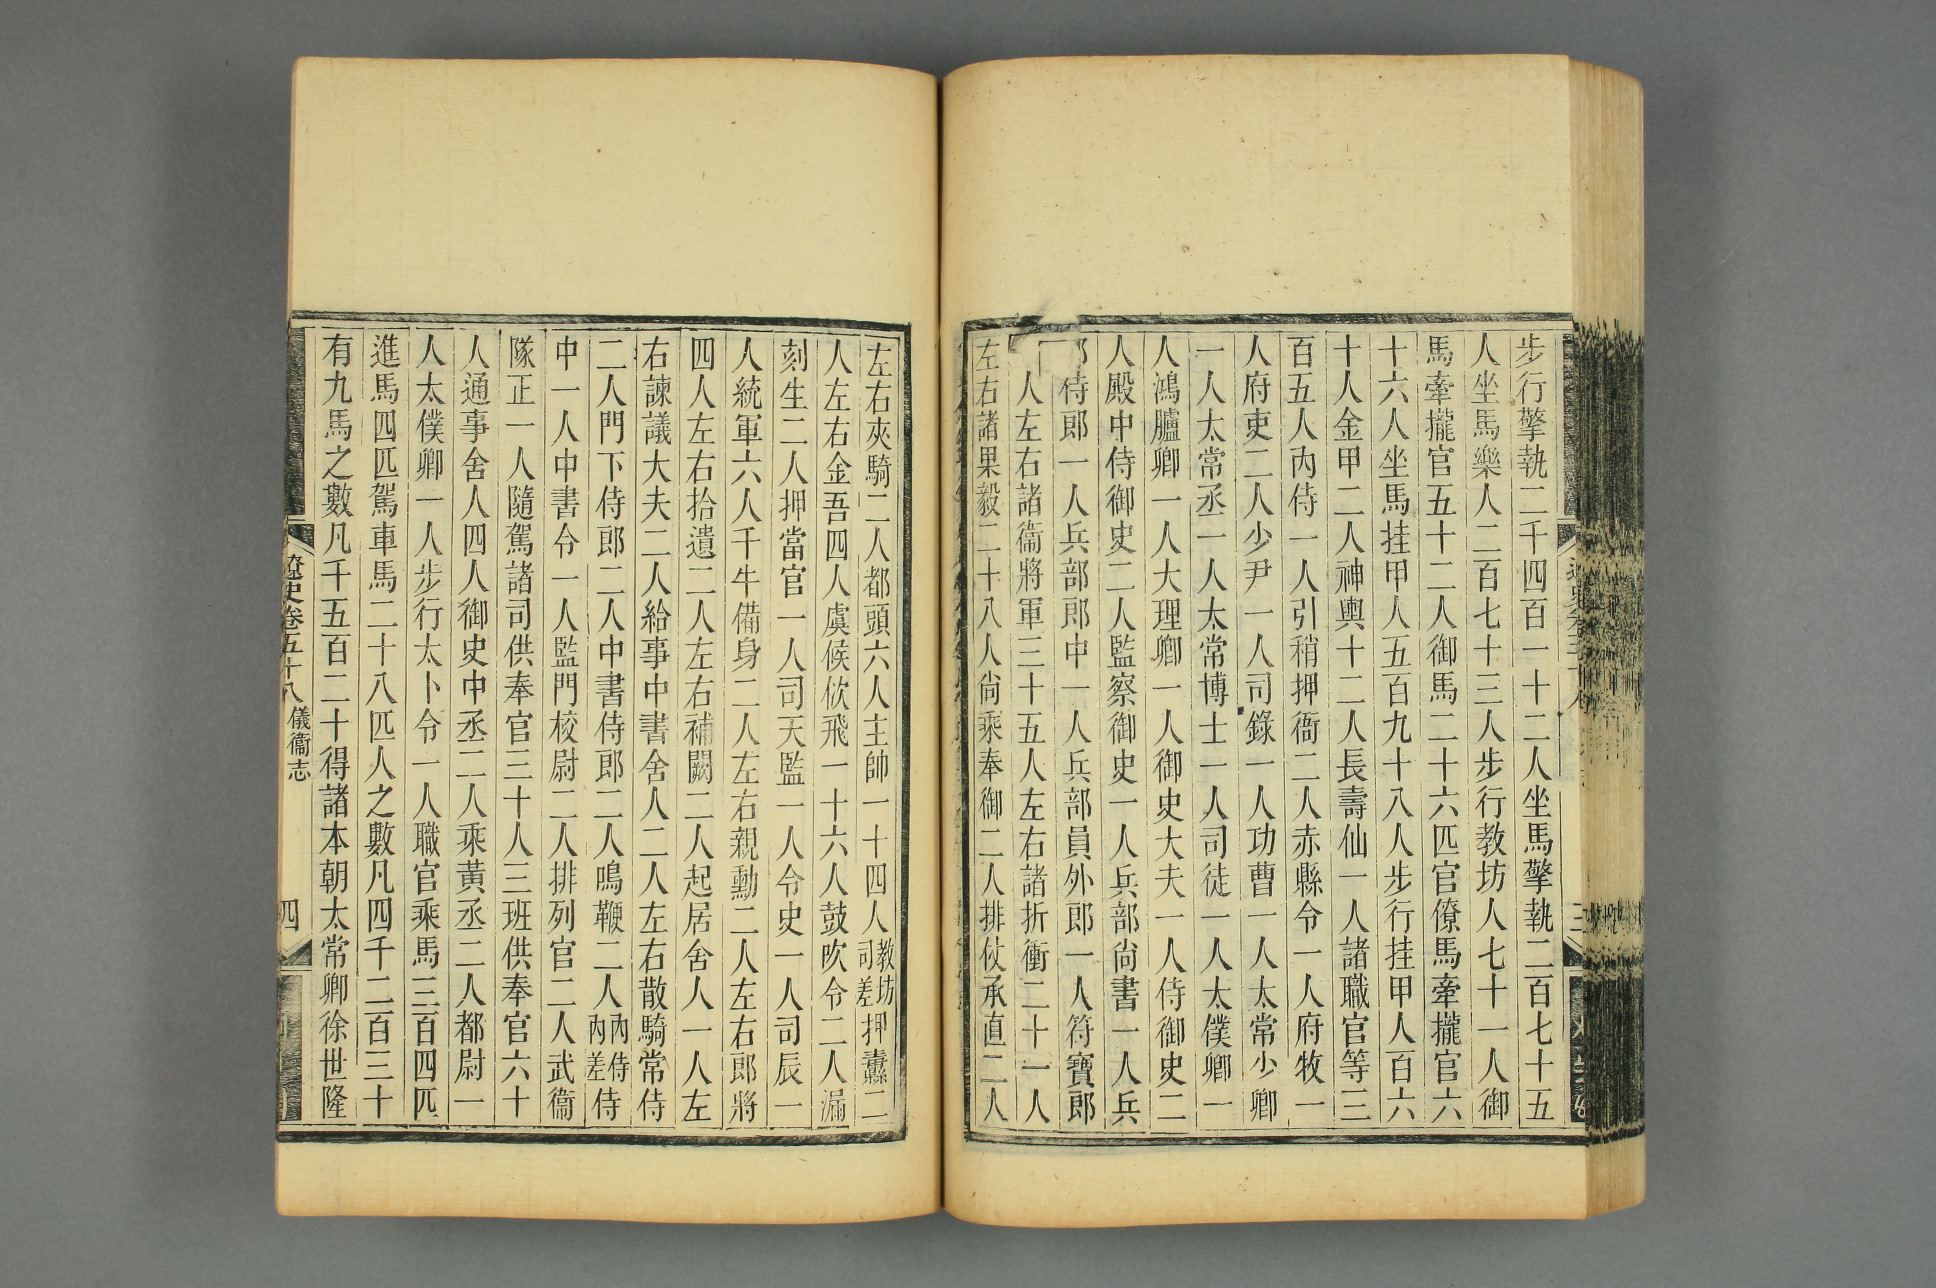 步行擎執二千四百一十二人坐馬擎執二百七十五
人坐馬樂人二百七十三人步行教坊人七十一人御
馬牽攏官五十二人御馬二十六匹官僚馬牽攏官六
十六人坐馬挂甲人五百九十八人步行挂甲人百六
十人金甲二人神輿十二人長壽仙一人諸職官等三
百五人內侍一人引稍押衙二人赤縣令一人府牧一
人府吏二人少尹一人司錄一人功曹一人太常少卿
一人太常丞一人太常博士一人司徒一人太僕卿一
人鴻臚卿一人大理卿一人御史大夫一人侍御史二
人殿中侍御史二人監察御史一人兵部尚書一人兵
部侍郎一人兵部郎中一人兵部員外郎一人符寶郎
一人左右諸衞將軍三十五人左右諸折衝二十一人
左右諸果毅二十八人尚乘奉御二人排仗承直二人
左右夾騎二人都頭六人主帥一十四人教坊司差押纛二
人左右金吾四人虞候佽飛一十六人鼓吹令二人漏
刻生二人押當官一人司天監一人令史一人司辰一
人統軍六人千牛備身二人左右親勳二人左右郎將
四人左右拾遺二人左右補闕二人起居舍人一人左
右諫議大夫二人給事中書舍人二人左右散騎常侍
二人門下侍郎二人中書侍郎二人鳴鞭二人內侍內差侍
中一人中書令一人監門校尉二人排列官二人武衞
隊正一人隨駕諸司供奉官三十人三班供奉官六十
人通事舍人四人御史中丞二人乘黃丞二人都尉一
人太僕卿一人步行太卜令一人職官乘馬三百四匹
進馬四匹駕車馬二十八匹人之數凡四千二百三十
有九馬之數凡千五百二十得諸本朝太常卿徐世隆
遼史卷五十八 儀衞志 四